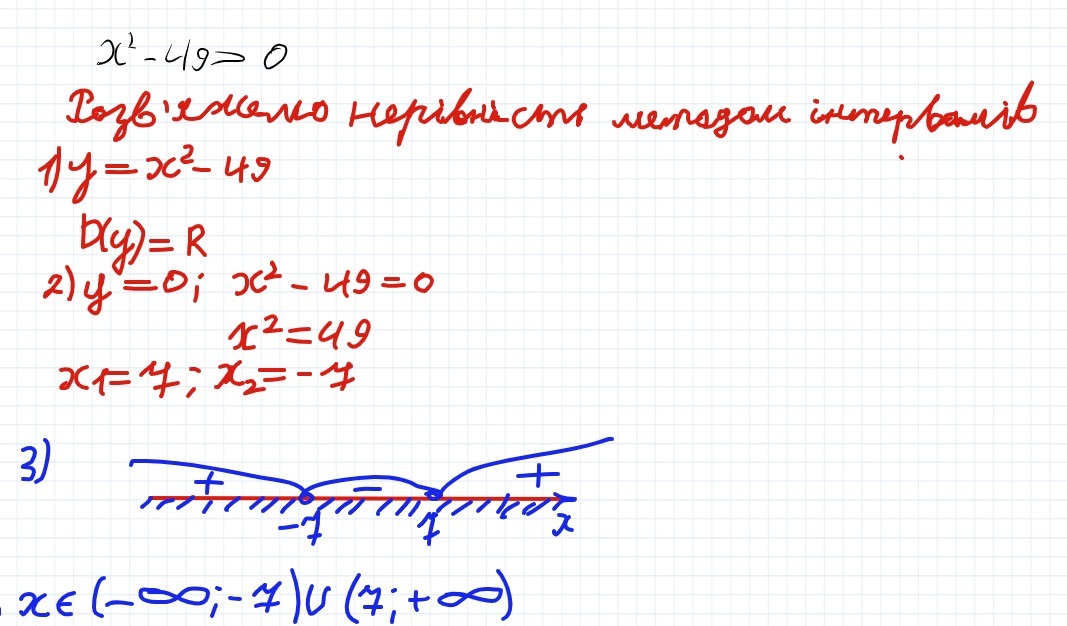 x² - 49 = 0
Розв'яжемо нерівність методом інтервалів
1) y = x² - 49
D(y) = R
2) y = 0; x² - 49 = 0
x² = 49
x1 = 7; x₂ = -7
3)
+ − +
-7 7 x
x ∈ (-∞; -7) ∪ (7; +∞)